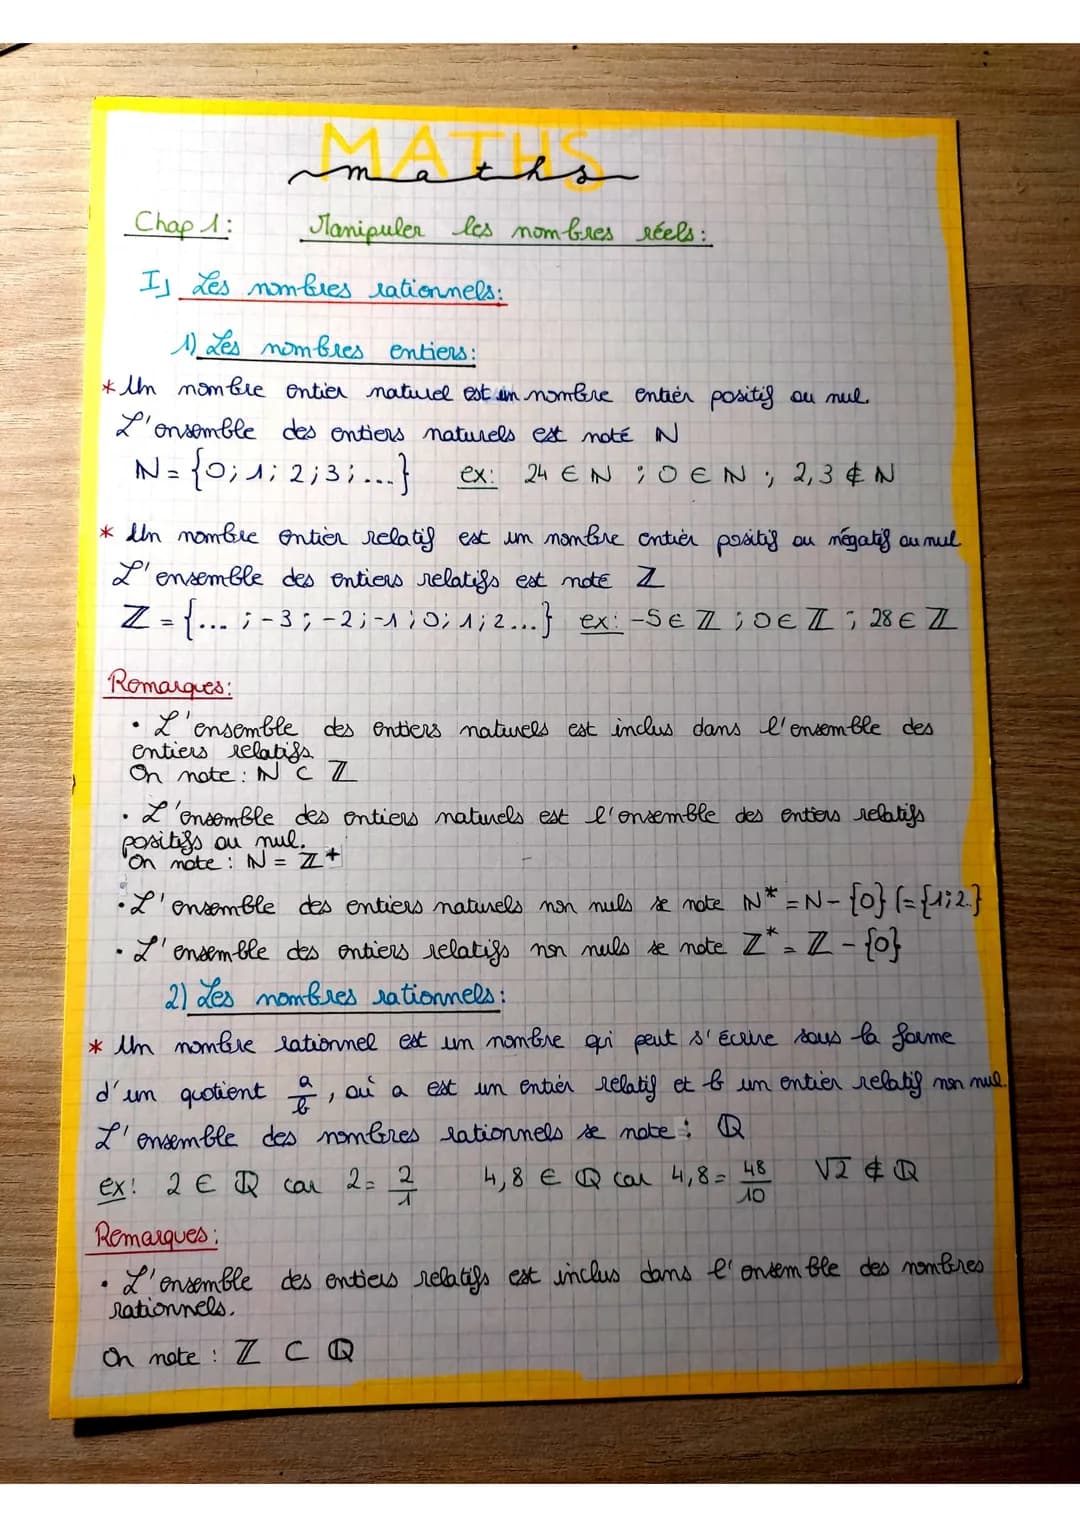 MATHS
maths
Chap 1: Manipuler les nombres réels:
I) Les nombres rationnels:
1) Les nombres entiers:
* Un nombre entier naturel est un nombre entier positif ou nul.
L'ensemble des entiers naturels est noté ℕ
ℕ = {0; 1; 2; 3; ...} ex: 24 ∈ ℕ ; 0 ∈ ℕ ; 2,3 ∉ ℕ
* Un nombre entier relatif est un nombre entier positif ou négatif ou nul
L'ensemble des entiers relatifs est noté ℤ
ℤ = {... ; -3 ; -2 ; -1 ; 0 ; 1 ; 2 ...} ex: -5 ∈ ℤ ; 0 ∈ ℤ ; 28 ∈ ℤ
Remarques:
• L'ensemble des entiers naturels est inclus dans l'ensemble des
entiers relatifs.
On note : ℕ ⊂ ℤ
• L'ensemble des entiers naturels est l'ensemble des entiers relatifs
positifs ou nul.
On note : ℕ = ℤ+
• L'ensemble des entiers naturels non nuls se note ℕ* = ℕ - {0} (= {1; 2..}
• L'ensemble des entiers relatifs non nuls se note ℤ* = ℤ - {0}
2) Les nombres rationnels:
* Un nombre rationnel est un nombre qui peut s'écrire sous la forme
d'un quotient a/b, où a est un entier relatif et b un entier relatif non nul.
L'ensemble des nombres rationnels se note : ℚ
ex: 2 ∈ ℚ car 2 = 2/1 4,8 ∈ ℚ car 4,8 = 48/10 √2 ∉ ℚ
Remarques:
• L'ensemble des entiers relatifs est inclus dans l'ensemble des nombres
rationnels.
On note : ℤ ⊂ ℚ